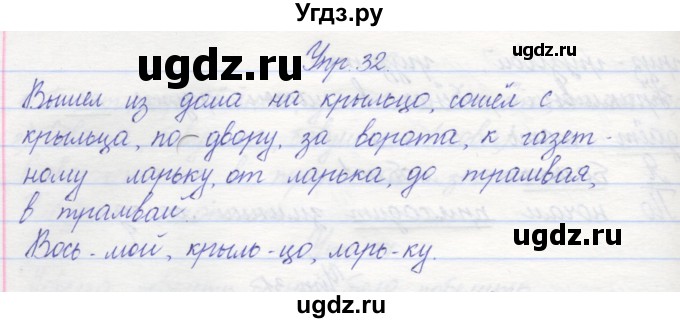 Угдз.ру
Упр. 32.
Вышел из дома на крыльцо, сошёл с
крыльца, по двору, за ворота, к газет-
ному ларьку, от ларька, до трамвая,
в трамвай.
Вось-мой, крыль-цо, ларь-ку.
ugdz.ru
ugdz.ru
ugdz.ru
ugdz.ru
ugdz.ru
ugdz.ru
ugdz.ru